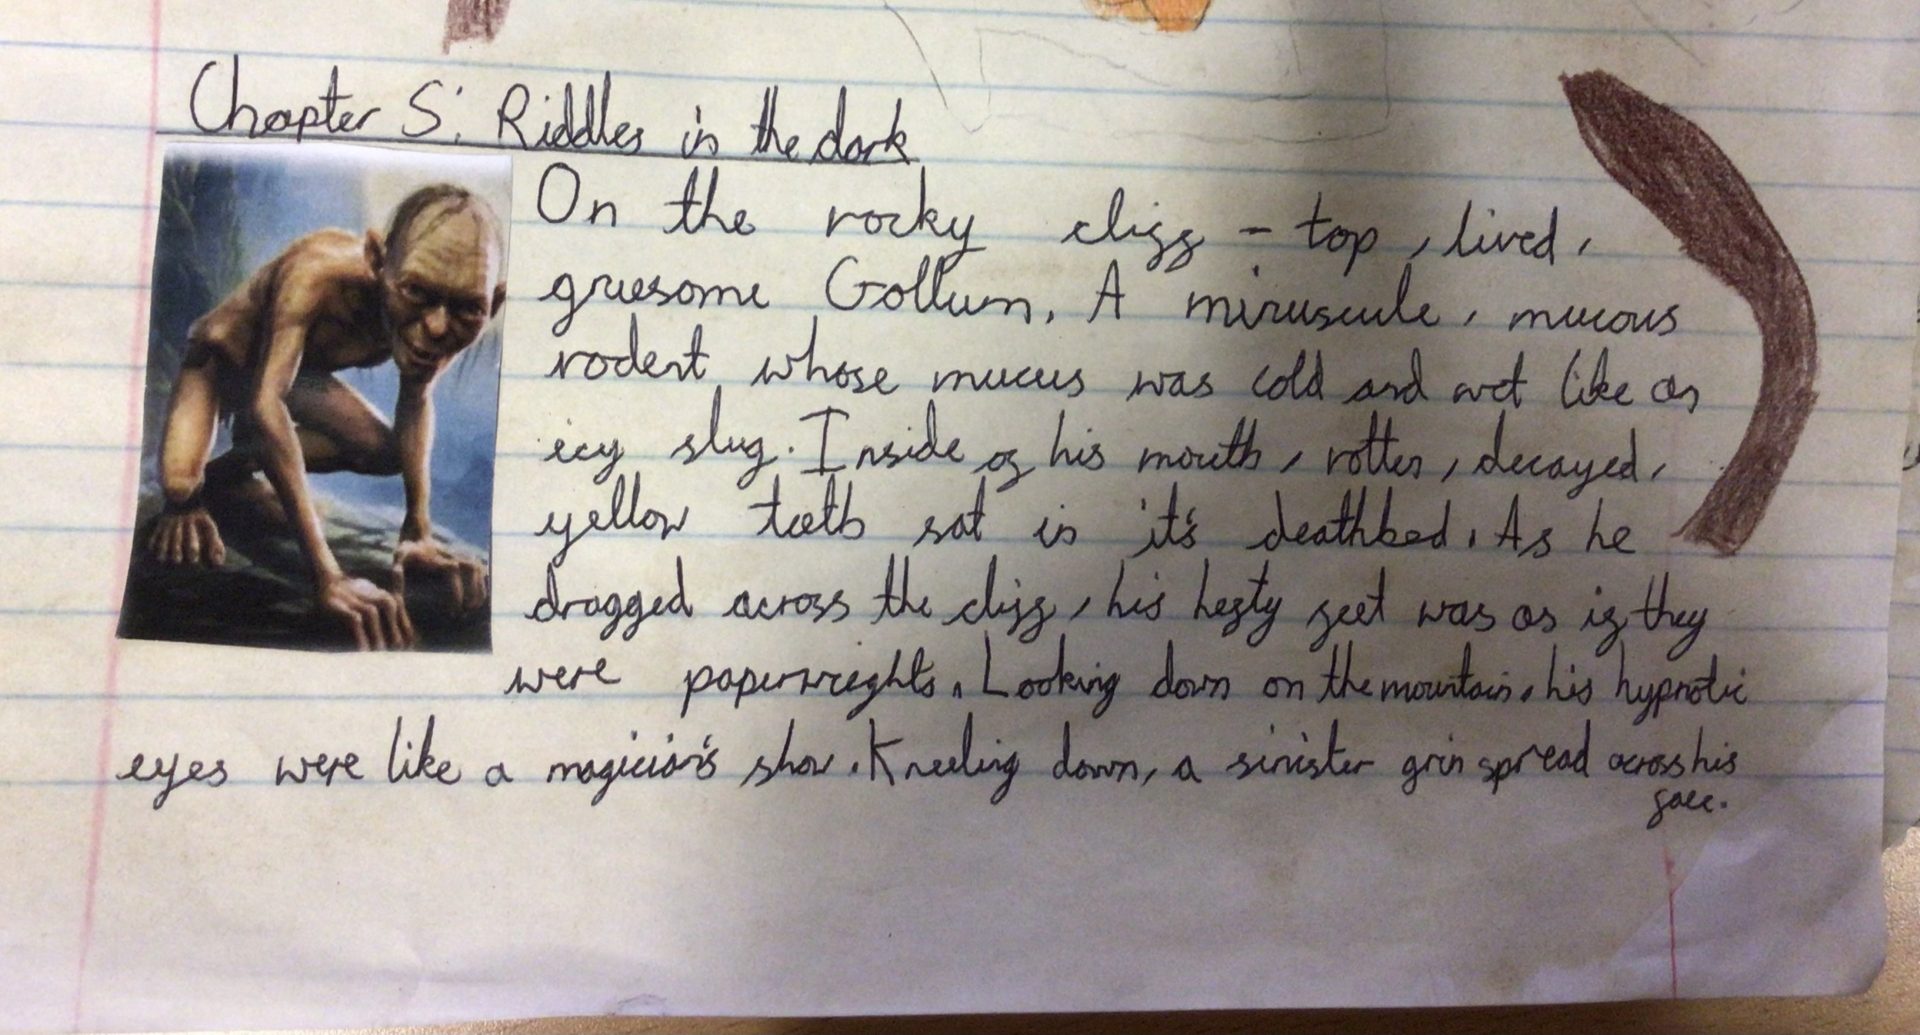 Chapter 5: Riddles in the dark
On the rocky cliff - top, lived,
gruesome Gollum. A miruscule, mucous
rodent whose mucus was cold and wet like an
icy slug. Inside of his mouth, rotten, decayed,
yellow teeth sat in it's deathbed. As he
dragged across the cliff, his hefty feet was as if they
were paperweights. Looking down on the mountain, his hypnotic
eyes were like a magician's show. Kneeling down, a sinister grin spread across his
face.